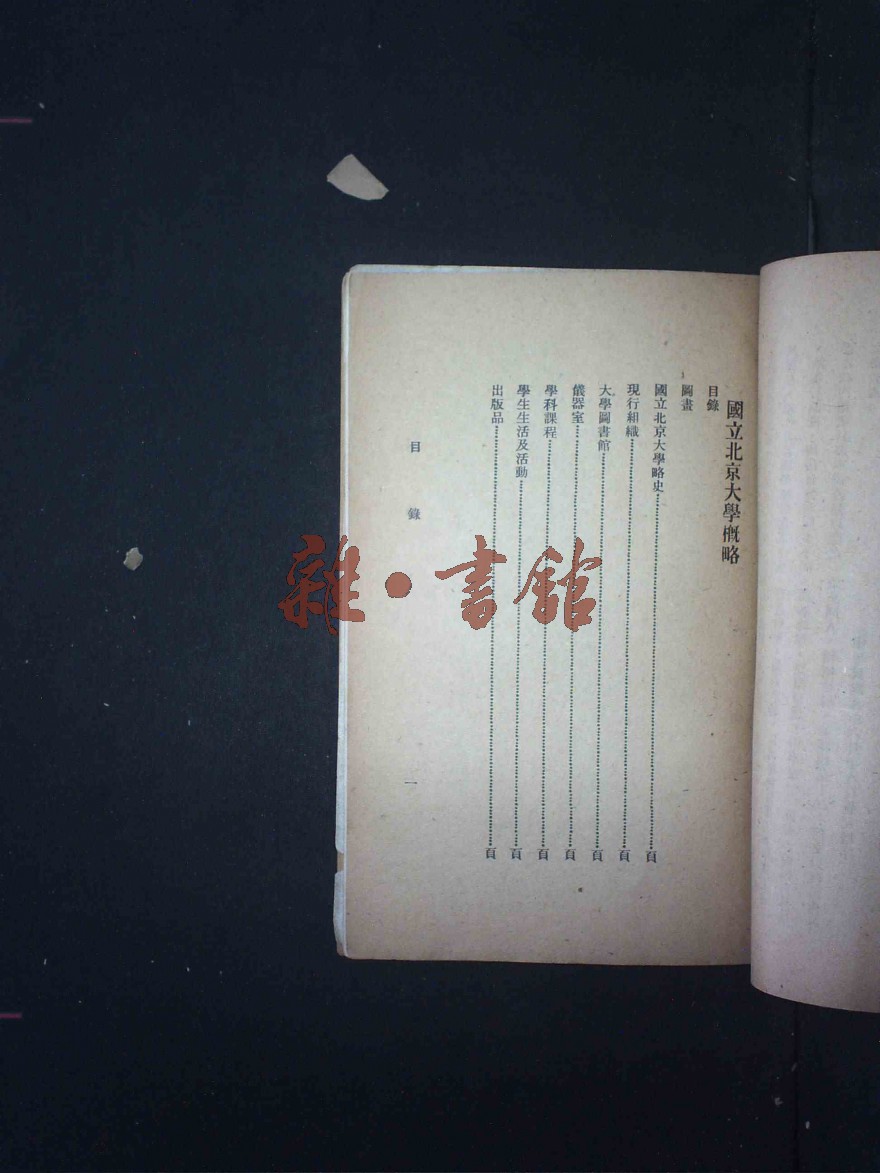 國立北京大學概略
目錄
圖畫
國立北京大學略史……頁
現行組織……頁
大學圖書館……頁
儀器室……頁
學科課程……頁
學生生活及活動……頁
出版品……頁
目錄
一
雜・書館